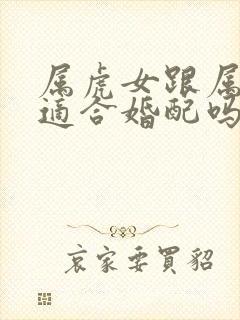 属虎女跟属
适合婚配吗
哀家要買貂